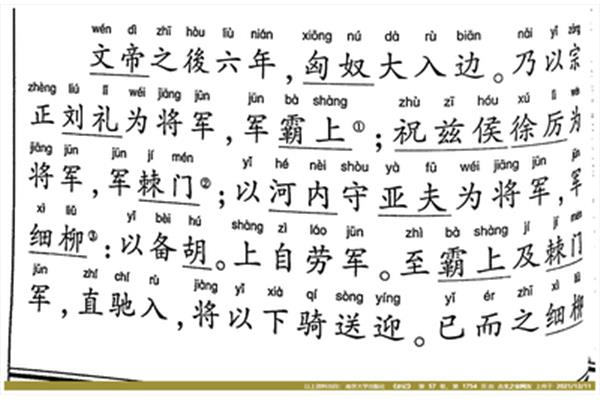 wén dì zhī hòu liù nián xiōng nú dà rù biān nǎi yǐ zōng
文帝之後六年，匈奴大入边。乃以宗
zhèng liú lǐ wéi jiāng jūn jūn bà shàng zhù zī hóu xú lì wéi
正刘礼为将军，军霸上①；祝兹侯徐厉为
jiāng jūn jūn jí mén yǐ hé nèi shǒu yà fū wéi jiāng jūn
将军，军棘门②；以河内守亚夫为将军，军
xì liǔ yǐ bèi hú shàng zì láo jūn zhì bà shàng jí jí mén
细柳③：以备胡。上自劳军。至霸上及棘门
jūn zhí chí rù jiàng yǐ xià qí sòng yíng yǐ ér zhī xì liǔ
军，直驰入，将以下骑送迎。已而之细柳
以上资料出自： 南京大学出版社 《史记》 第 57 卷, 第 1754 页 由 上传于 2021/12/11